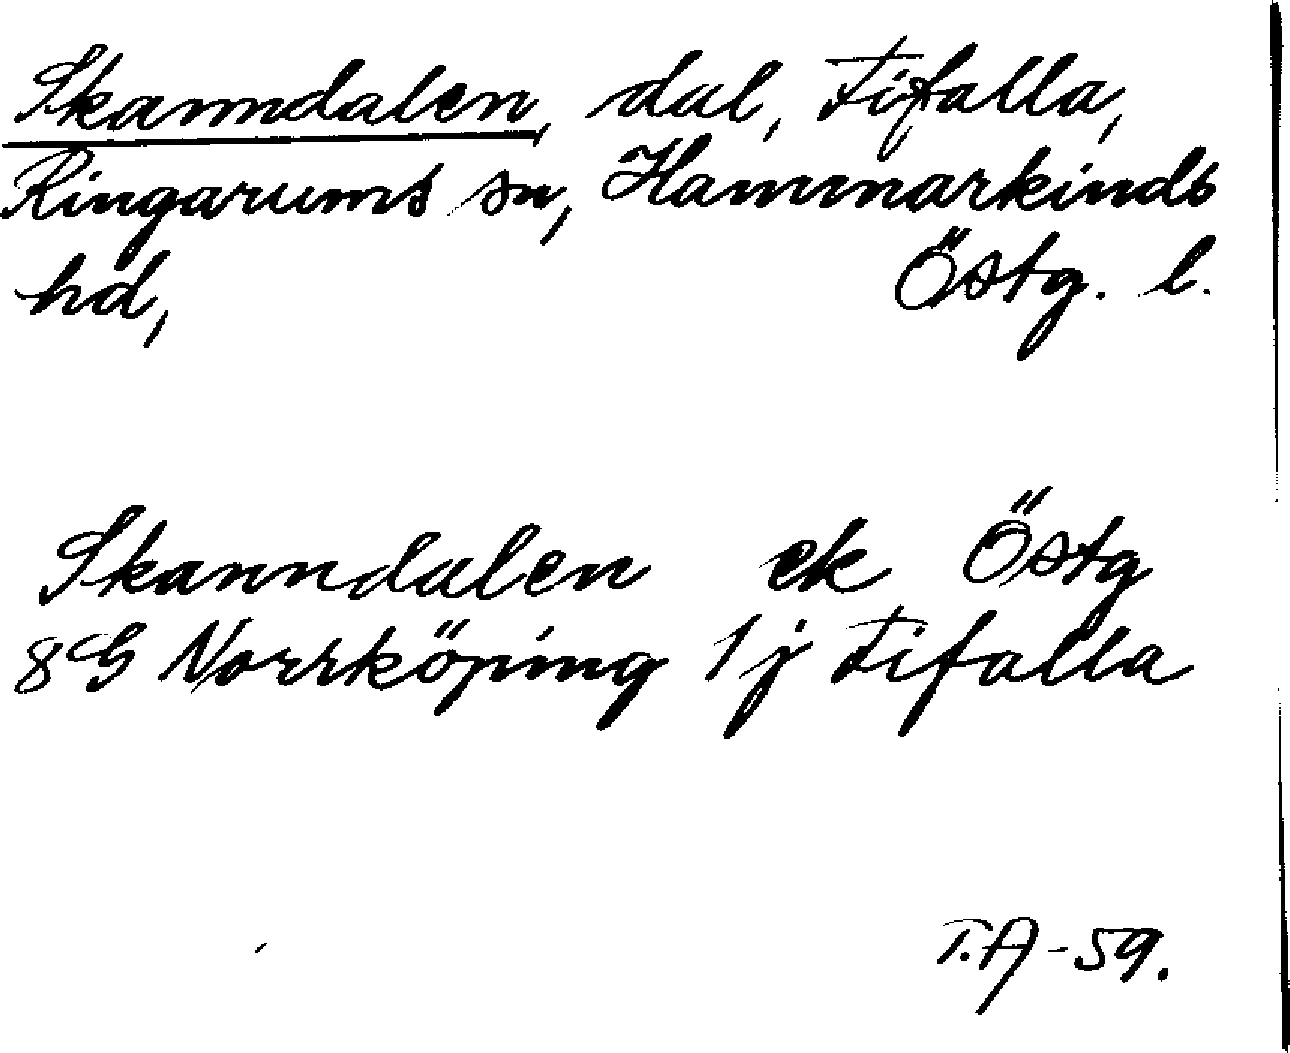 Skanndalen, dal, Fifalla,
Ringarums sn, Hammarkinds
hd, Östg. l.
Skanndalen ek Östg
8G Norrköping 1j Fifalla
T.A-59.